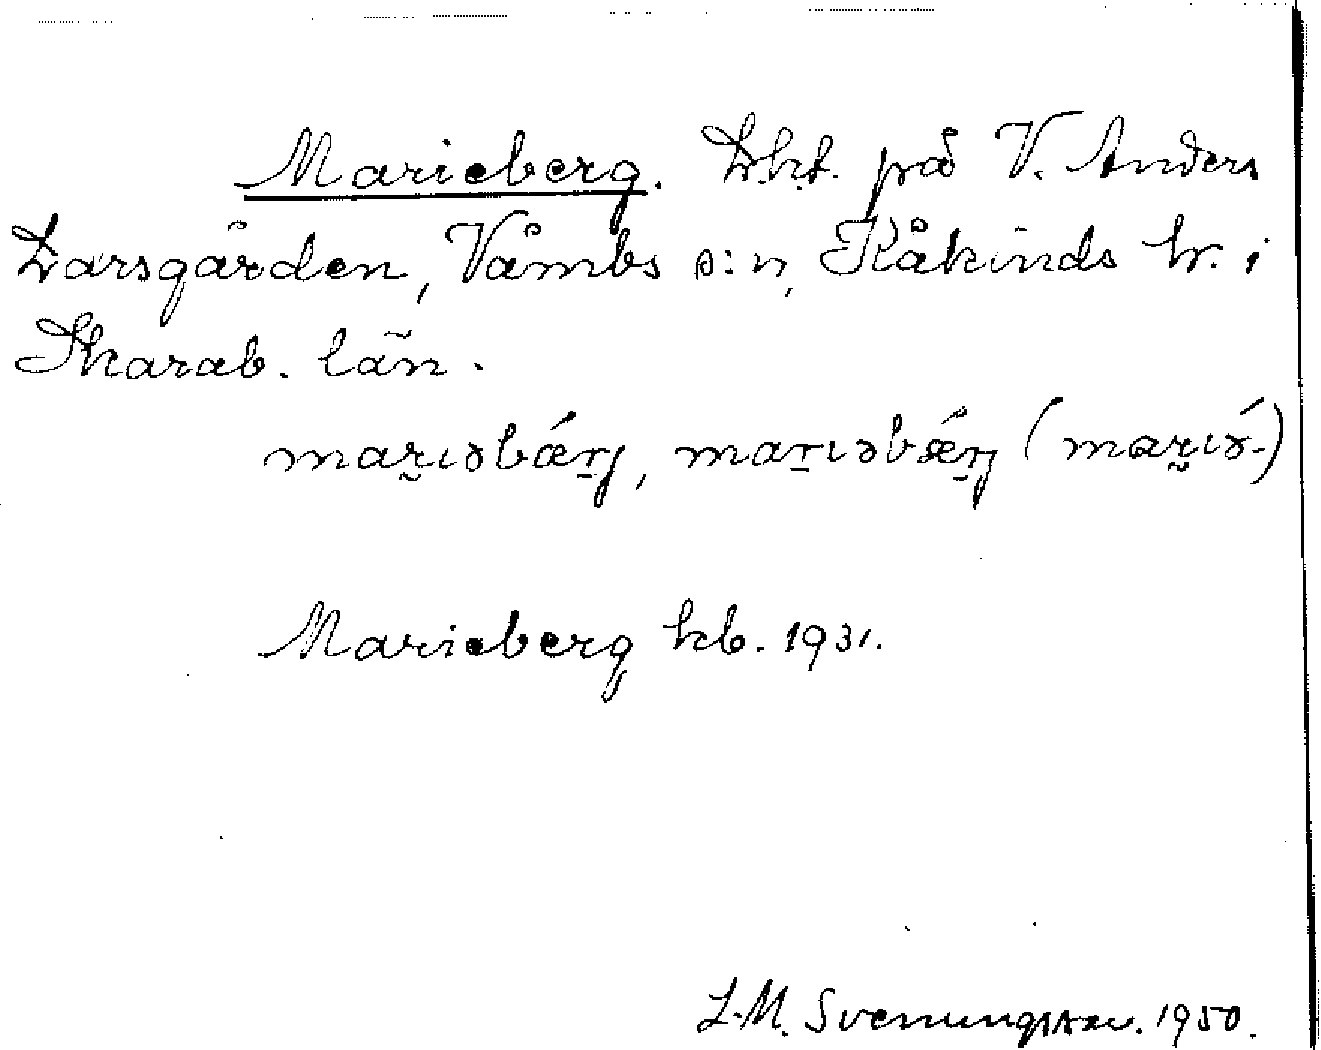 Marieberg. Lht. på V. Anders
Larsgården, Våmbs s:n, Kåkinds hr. i
Skarab. län.
mar̰ıəbǽrj, mar̠ıəbǽrj (mar̰ıə́-)
Marieberg kb. 1931.
L.M. Svenungsson. 1950.